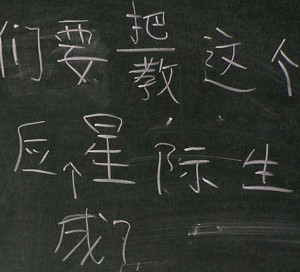 们要把教这个
应↑星际生
成